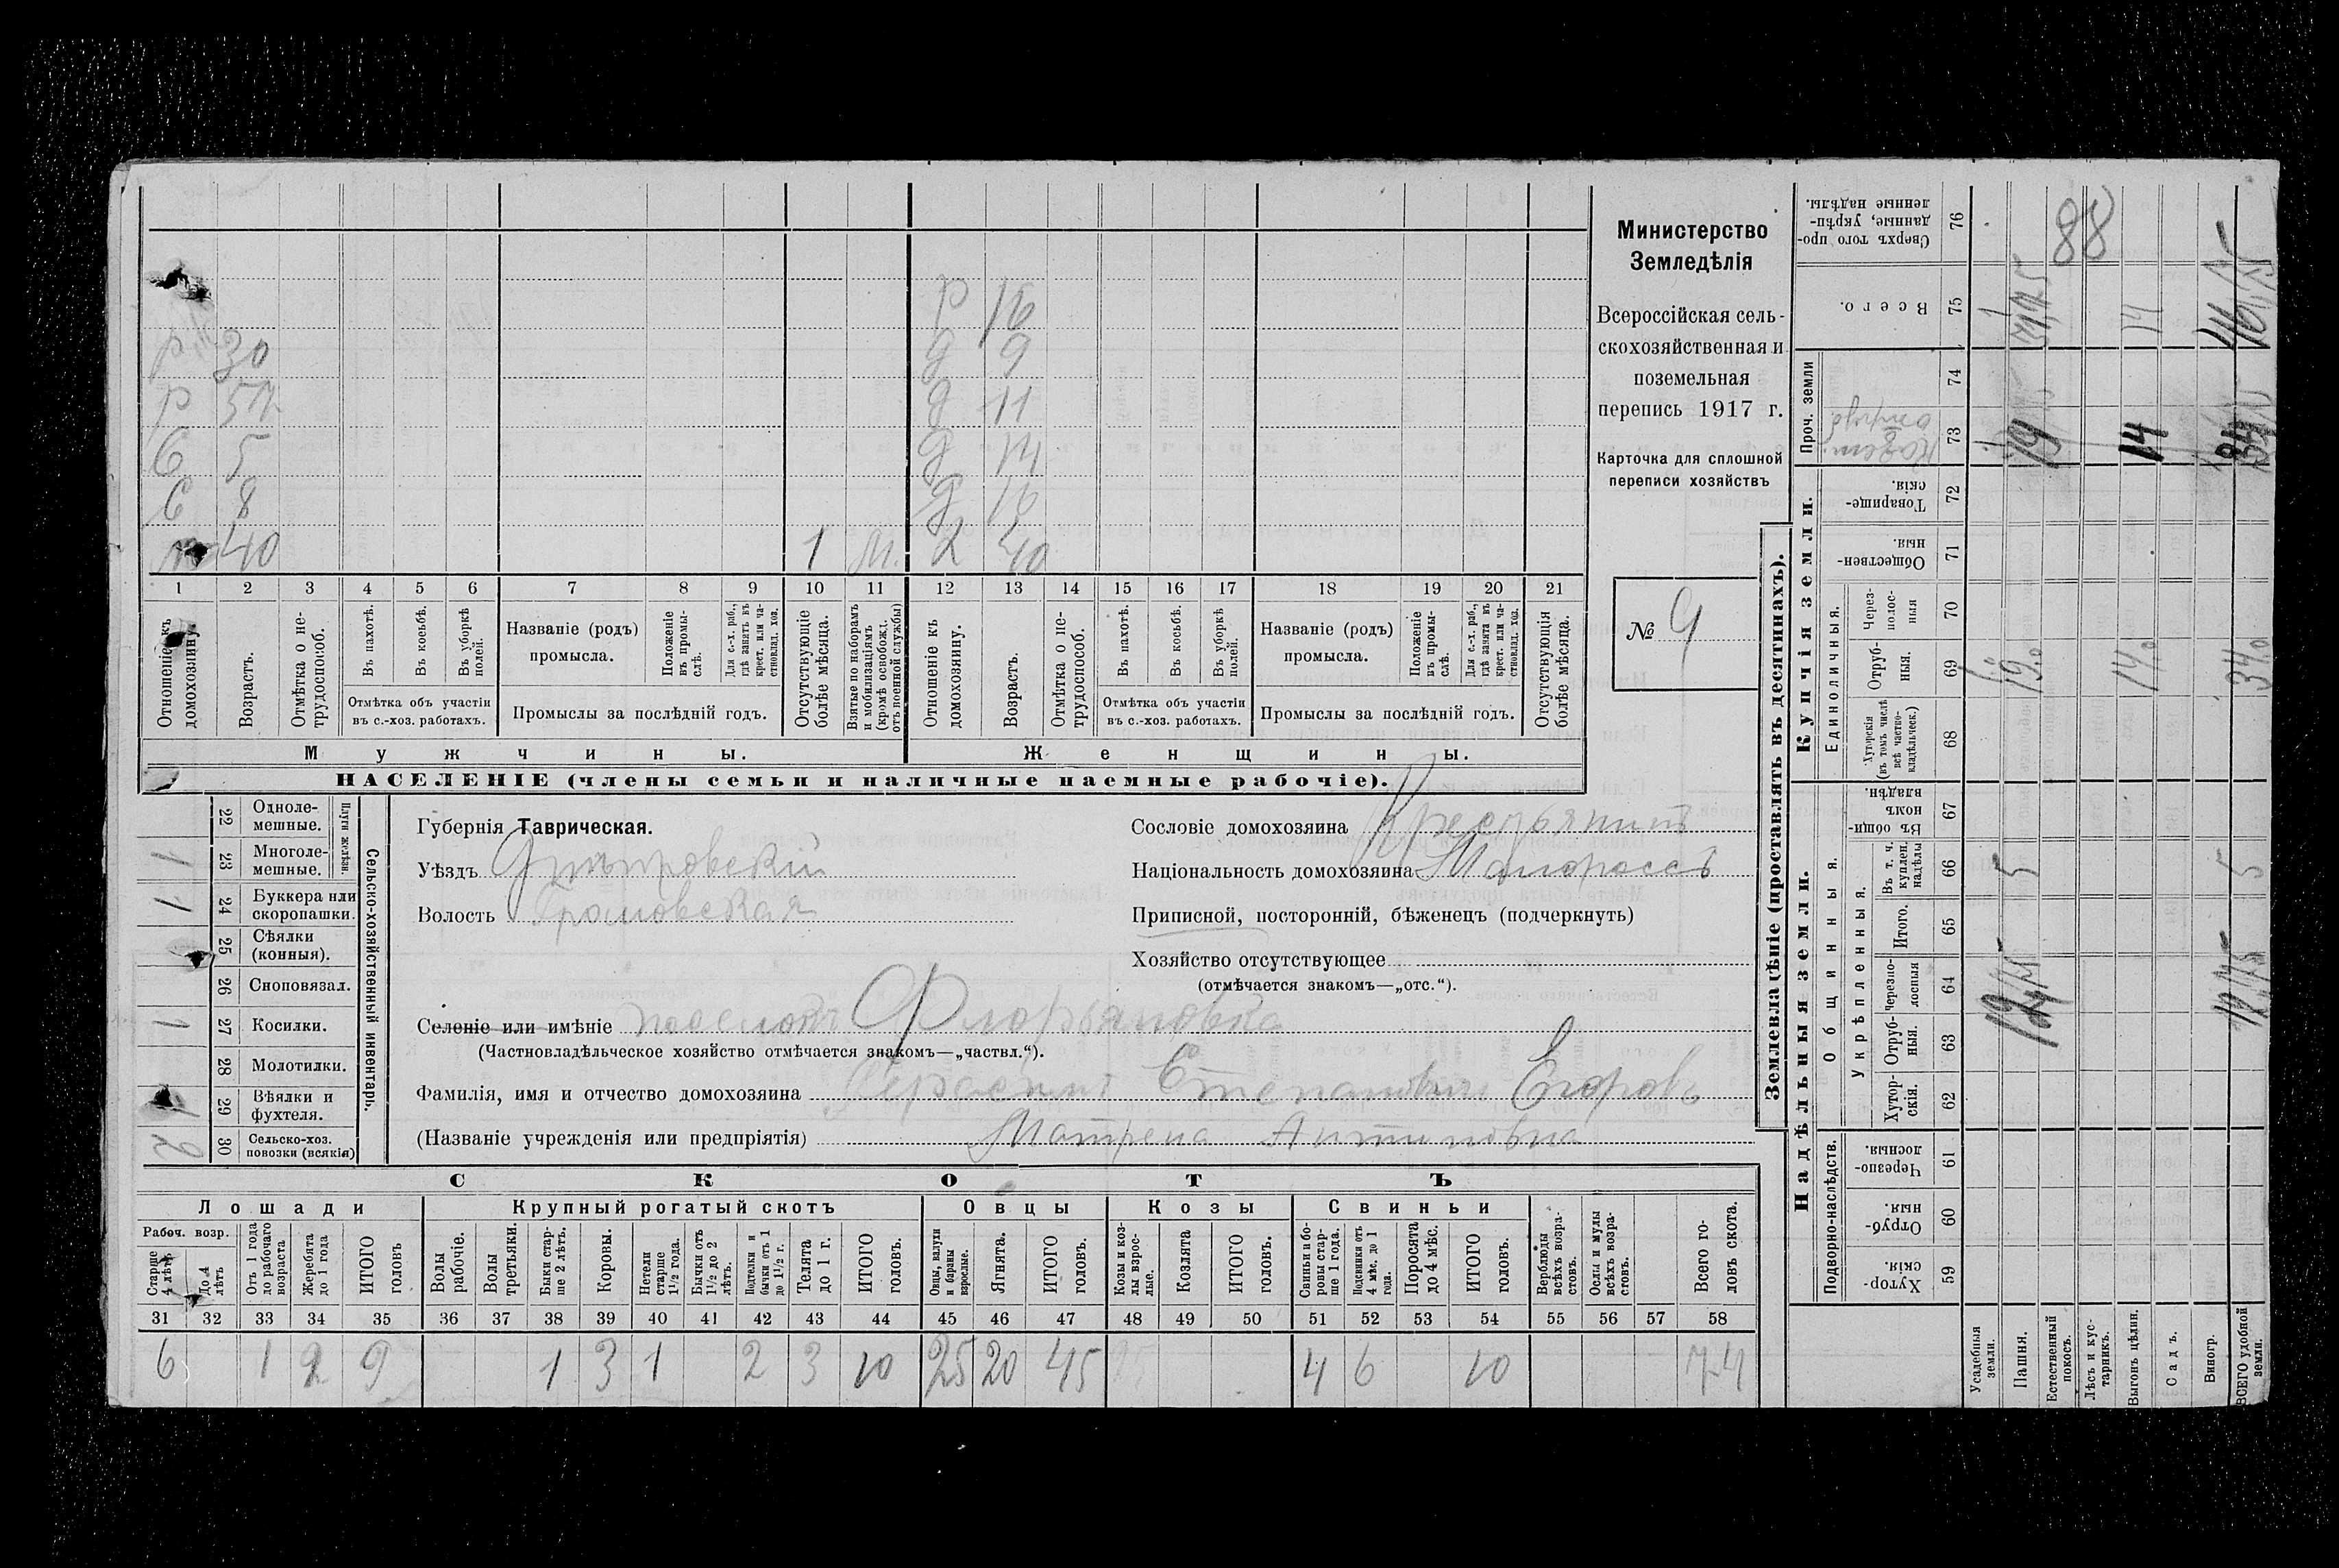 Министерство
Земледѣлія
Всероссійская сель-
скохозяйственная и
поземельная
перепись 1917 г.
Карточка для сплошной
переписи хозяйствъ
№ 9
р 16
р 30 д 9
р 57 д 11
С 5 д 14
С 8 д 16
40 1 М. 2 40
1 2 3 4 5 6 7 8 9 10 11 12 13 14 15 16 17 18 19 20 21
Отношеніе къ домохозяину.
Возрастъ.
Отмѣтка о не-трудоспособ.
Въ пахотѣ.
Въ косьбѣ.
Въ уборкѣ полей.
Отмѣтка объ участіи
въ с.-хоз. работахъ.
Названіе (родъ)
промысла.
Положеніе въ промы-слѣ.
Для с.-х. раб., гдѣ занятъ въ крест. или ча-стновлад. хоз.
Промыслы за послѣдній годъ.
Отсутствующіе болѣе мѣсяца.
Взятые по наборамъ и мобилизаціямъ (кромѣ освобожд. отъ военной службы)
Отношеніе къ домохозяину.
Возрастъ.
Отмѣтка о не-трудоспособ.
Въ пахотѣ.
Въ косьбѣ.
Въ уборкѣ полей.
Отмѣтка объ участіи
въ с.-хоз. работахъ.
Названіе (родъ)
промысла.
Положеніе въ промы-слѣ.
Для с.-х. раб., гдѣ занята въ крест. или ча-стновлад. хоз.
Промыслы за послѣдній годъ.
Отсутствующія болѣе мѣсяца.
Мужчины. Женщины.
НАСЕЛЕНІЕ (члены семьи и наличные наемные рабочіе).
Сельско-хозяйственный инвентарь.
Плуги желѣзн.
22 Одноле-мешные.
1 23 Многоле-мешные.
1 24 Буккера или скоропашки.
25 Сѣялки (конныя).
26 Сноповязал.
1 27 Косилки.
28 Молотилки.
29 Вѣялки и фухтеля.
2 30 Сельско-хоз. повозки (всякія)
Губернія Таврическая.
Уѣздъ Днѣпровскій
Волость Громовская
Сословіе домохозяина Крестьянинъ
Національность домохозяина Малороссъ
Приписной, посторонній, бѣженецъ (подчеркнуть)
Хозяйство отсутствующее
(отмѣчается знакомъ—„отс.“).
Селеніе или имѣніе поселокъ Флоріановка
(Частновладѣльческое хозяйство отмѣчается знакомъ—„частвл.“).
Фамилія, имя и отчество домохозяина Герасимъ Степановичъ Егоровъ
(Названіе учрежденія или предпріятія) Матрена Антиповна
СКОТЪ
Лошади Крупный рогатый скотъ Овцы Козы Свиньи
Рабоч. возр.
Старше 4 лѣтъ
До 4 лѣтъ
Отъ 1 года до рабочаго возраста
Жеребята до 1 года
ИТОГО головъ
Волы рабочіе.
Волы третьяки.
Быки стар-ше 2 лѣтъ.
Коровы.
Нетели старше 1½ года.
Бычки отъ 1½ до 2 лѣтъ.
Подтелки и бычки отъ 1 до 1½ г.
Телята до 1 г.
ИТОГО головъ.
Овцы, валухи и бараны взрослые.
Ягнята.
ИТОГО головъ.
Козы и коз-лы взрос-лые.
Козлята
ИТОГО головъ.
Свиньи и бо-ровы стар-ше 1 года.
Подсвинки отъ 4 мѣс. до 1 года.
Поросята до 4 мѣс.
ИТОГО головъ.
Верблюды всѣхъ возра-стовъ.
Ослы и мулы всѣхъ возра-стовъ.
Всего го-ловъ скота.
31 32 33 34 35 36 37 38 39 40 41 42 43 44 45 46 47 48 49 50 51 52 53 54 55 56 57 58
6 1 2 9 1 3 1 2 3 10 25 20 45 4 6 10 74
Землевладѣніе (проставлять въ десятинахъ).
Надѣльныя земли. Купчія земли. Проч. земли
Подворно-наслѣдств. Общинныя. Укрѣпленныя. Единоличныя.
Хутор-скія. 59
Отруб-ныя. 60
Черезпо-лосныя. 61
Хутор-скія. 62
Отруб-ныя. 63
Черезпо-лосныя 64
Итого. 65
Въ т. ч. куплен. надѣлы 66
Въ общин-номъ владѣн. 67
Хуторскія (въ томъ числѣ всѣ частно-владѣльческ.) 68
Отруб-ныя. 69
Через-полос-ныя 70
Обществен-ныя. 71
Товарище-скія. 72
73
74
Всего. 75
Сверхъ того про-данные, укрѣп-ленные надѣлы. 76
Усадебныя земли.
Пашня. 5 19,0 19
Естественный покосъ. 88
Лѣсъ и кус-тарникъ.
Выгонъ цѣлин. 14,0 14 14
Садъ.
Виногр.
ВСЕГО удобной земли. 5 34,0